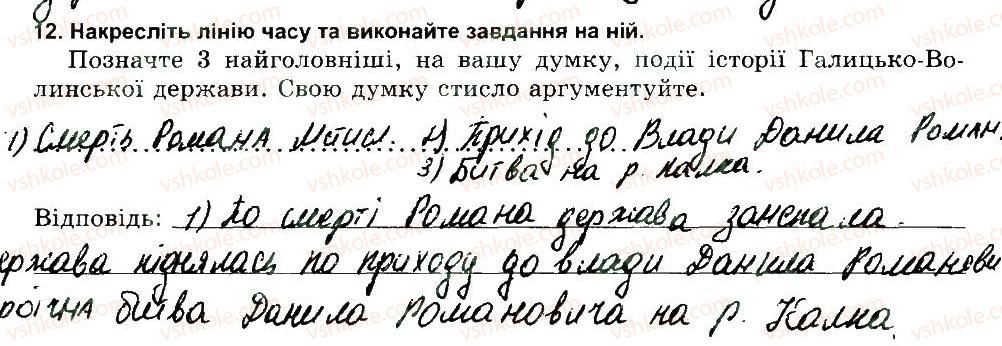 12. Накресліть лінію часу та виконайте завдання на ній.
Позначте 3 найголовніші, на вашу думку, події історії Галицько-Во-
линської держави. Свою думку стисло аргументуйте.
1) Смерть Романа Мстисл. 2) Прихід до Влади Данила Роман.
3) Битва на р. Калка.
Відповідь: 1) По смерті Романа держава занепала.
ержава піднялась по приходу до влади Данила Романови
роїчна битва Данила Романовича на р. Калка.